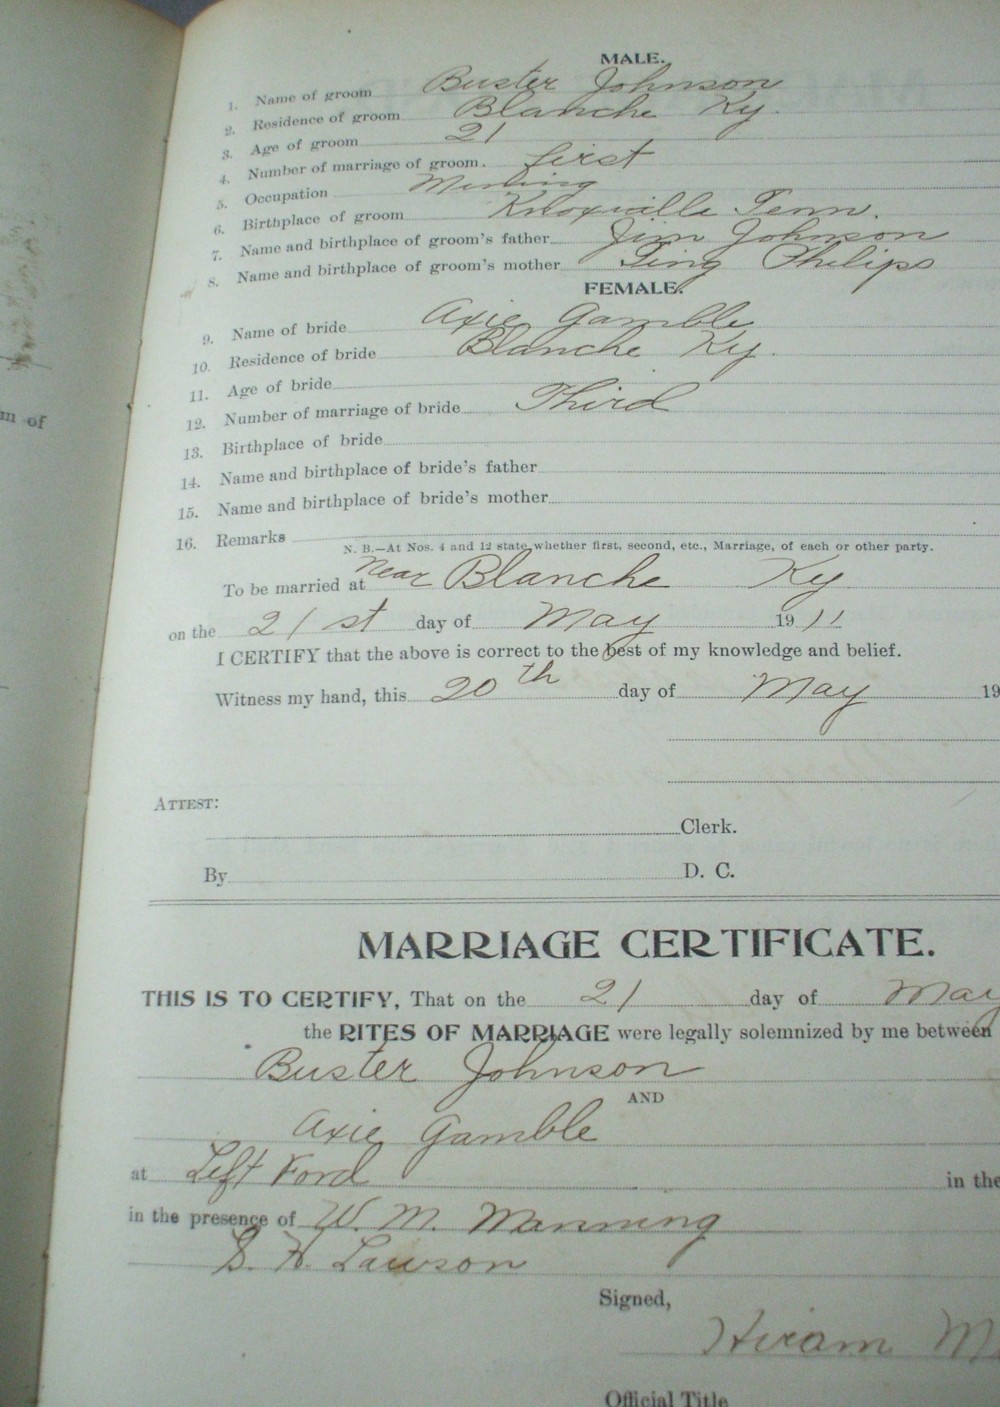 MALE.
1. Name of groom Buster Johnson
2. Residence of groom Blanche Ky.
3. Age of groom 21
4. Number of marriage of groom. first
5. Occupation Mining
6. Birthplace of groom Knoxville Tenn.
7. Name and birthplace of groom's father Jim Johnson
8. Name and birthplace of groom's mother Philips
FEMALE.
9. Name of bride Axie Gamble
10. Residence of bride Blanche Ky.
11. Age of bride
12. Number of marriage of bride Third
13. Birthplace of bride
14. Name and birthplace of bride's father
15. Name and birthplace of bride's mother
16. Remarks
N. B.—At Nos. 4 and 12 state whether first, second, etc., Marriage, of each or other party.
To be married at near Blanche Ky
on the 21st day of May 1911
I CERTIFY that the above is correct to the best of my knowledge and belief.
Witness my hand, this 20th day of May 19
ATTEST:
Clerk.
By D. C.
MARRIAGE CERTIFICATE.
THIS IS TO CERTIFY, That on the 21 day of May
the RITES OF MARRIAGE were legally solemnized by me between
Buster Johnson
AND
Axie Gamble
at Left Ford in the
in the presence of W. M. Manning
Lawson
Signed,
Hiram M
Official Title
of